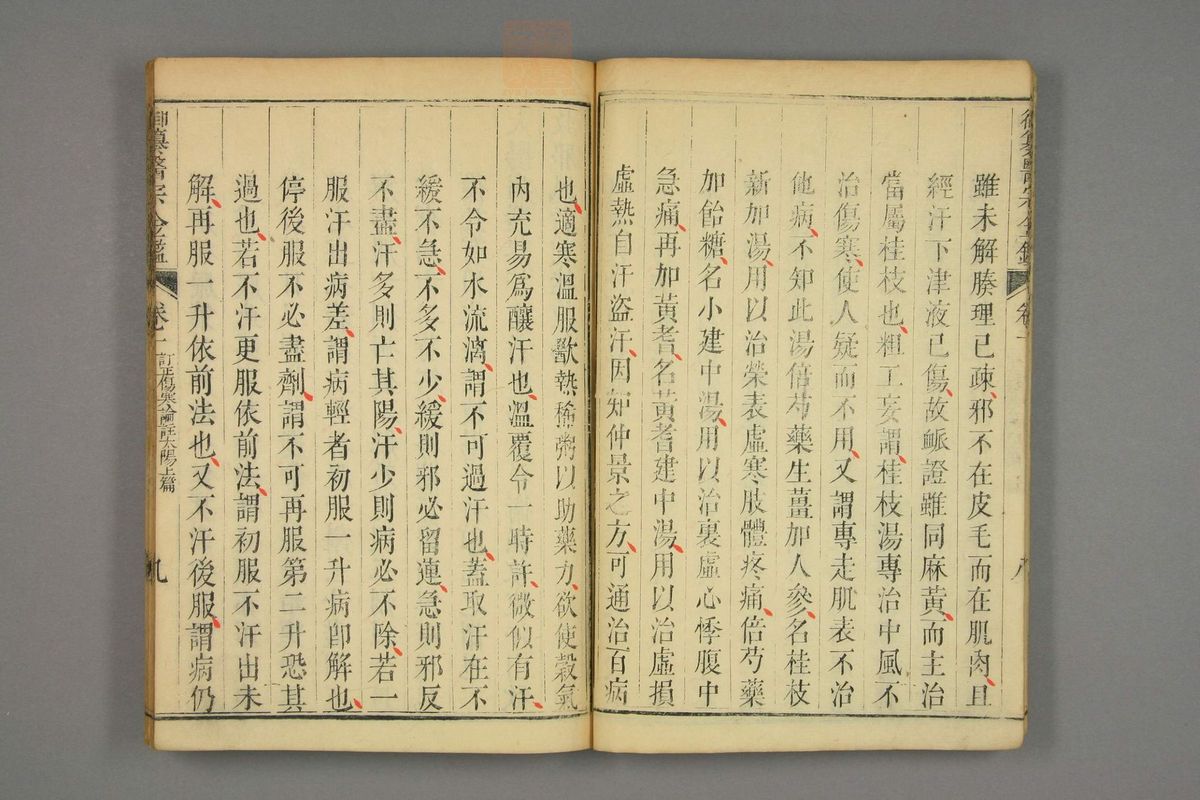 雖未解腠理已疎邪不在皮毛而在肌肉且
經汗下津液已傷故脈證雖同麻黃而主治
當屬桂枝也粗工妄謂桂枝湯專治中風不
治傷寒使人疑而不用又謂專走肌表不治
他病不知此湯倍芍藥生薑加人參名桂枝
新加湯用以治榮表虛寒肢體疼痛倍芍藥
加飴糖名小建中湯用以治裏虛心悸腹中
急痛再加黃耆名黃耆建中湯用以治虛損
虛熱自汗盜汗因知仲景之方可通治百病
也適寒溫服歠熱稀粥以助藥力欲使榖氣
內充易爲釀汗也溫覆令一時許微似有汗
不令如水流漓謂不可過汗也蓋取汗在不
緩不急不多不少緩則邪必留連急則邪反
不盡汗多則亡其陽汗少則病必不除若一
服汗出病差謂病輕者初服一升病卽解也
停後服不必盡劑謂不可再服第二升恐其
過也若不汗更服依前法謂初服不汗出未
解再服一升依前法也又不汗後服謂病仍
御纂醫宗金鑑 卷一 訂正傷寒論註太陽上篇 九